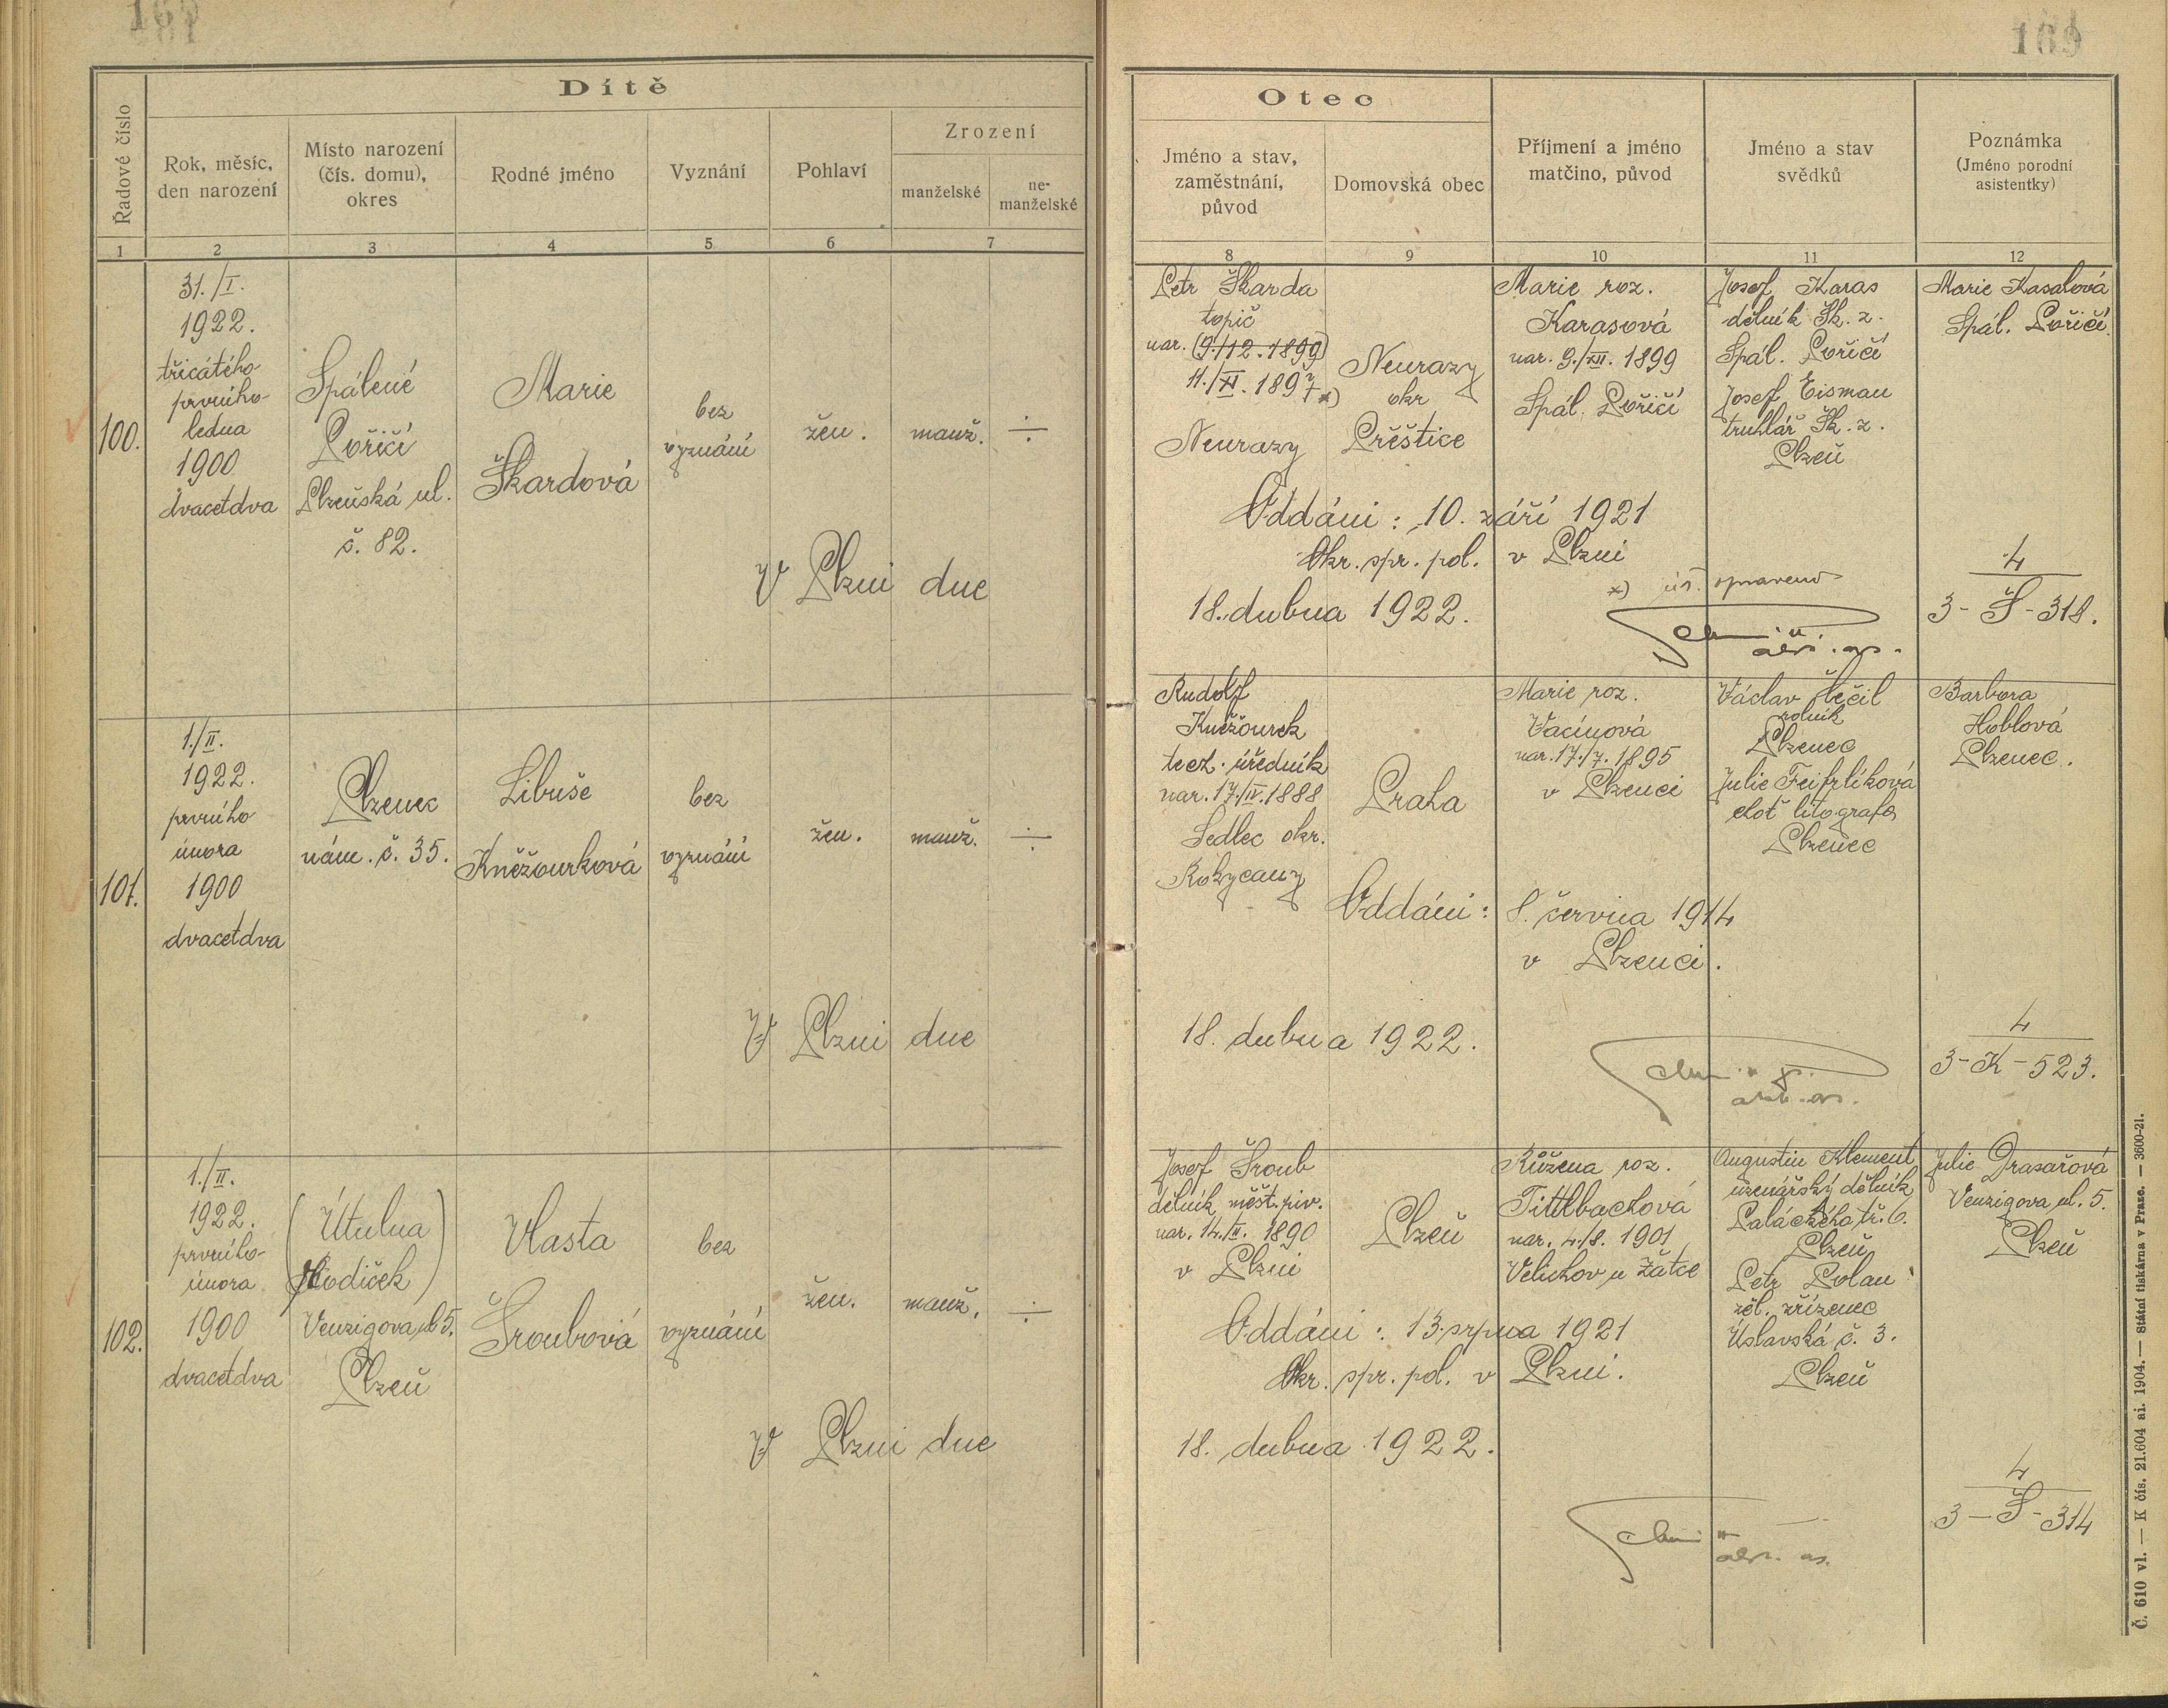 169
Dítě
Řadové číslo
Rok, měsíc,
den narození
Místo narození
(čís. domu),
okres
Rodné jméno
Vyznání
Pohlaví
Zrození
manželské
ne-
manželské
1 2 3 4 5 6 7
100.
31./I.
1922.
třicátého
prvního
ledna
1900
dvacetdva
Spálené
Poříčí
Plzeňská ul.
č. 82.
Marie
Škardová
bez
vyznání
žen.
manž.
÷
V Plzni dne
101.
1./II.
1922.
prvního
února
1900
dvacetdva
Plzenec
nám. č. 35.
Libuše
Kněžourková
bez
vyznání
žen.
manž.
÷
V Plzni dne
102.
1./II.
1922.
prvního
února
1900
dvacetdva
(Útulna
Hodiček)
Venzigova ul 5.
Plzeň
Vlasta
Šroubová
bez
vyznání
žen.
manž.
÷
V Plzni dne
169
Otec
Jméno a stav,
zaměstnání,
původ
Domovská obec
Příjmení a jméno
matčino, původ
Jméno a stav
svědků
Poznámka
(Jméno porodní
asistentky)
8 9 10 11 12
Petr Škarda
topič
nar. (9./12.1899)
11./XI. 1897 x)
Neurazy
Neurazy
okr
Přěštice
Marie roz.
Karasová
nar. 9./XII. 1899
Spál. Poříčí
Josef Karas
dělník Šk. z.
Spál. Poříčí
Josef Eisman
truhlář Šk. z.
Plzeň
Marie Kasalová
Spál. Poříčí.
Oddáni: 10. září 1921
Okr. spr. pol. v Plzni
x) úř. opraveno
18. dubna 1922.
4
3-Š-318.
Rudolf
Kněžourek
tech. úředník
nar. 17./IV.1888
Sedlec okr.
Rokycany
Praha
Marie roz.
Vacínová
nar. 17./7. 1895
v Plzenci
Václav
rolník
Plzenec
Julie Feifrlíková
choť litografa
Plzenec
Barbora
Hoblová
Plzenec.
Oddáni: 8. června 1914
v Plzenci.
18. dubna 1922.
4
3-K-523.
Josef Šroub
dělník měšt. piv.
nar. 14./II. 1890
v Plzni
Plzeň
Růžena roz.
Tittlbachová
nar. 4./8. 1901
Velichov u Žatce
Augustin Klement
uzenářský dělník
Palackého tř. 6.
Plzeň
Petr Polan
žel. zřízenec
Úslavská č. 3.
Plzeň
Julie Drasařová
Venzigova ul. 5.
Plzeň
Oddáni: 13. srpna 1921
Okr. spr. pol. v Plzni.
18. dubna 1922.
4
3-Š-314
Č. 610 vl. — K čís. 21.604 ai. 1904. — Státní tiskárna v Praze. — 3600-21.